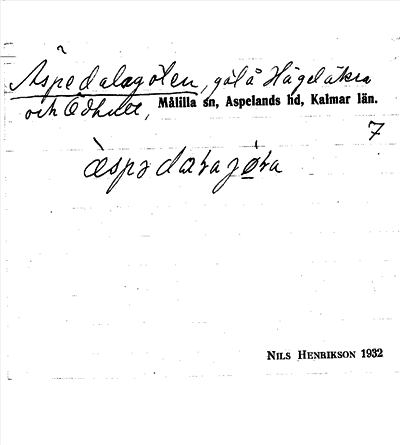 Äspedalagölen, göl å Hägelåkra
och Ödhult, Målilla sn, Aspelands hd, Kalmar län.
7
NILS HENRIKSON 1932